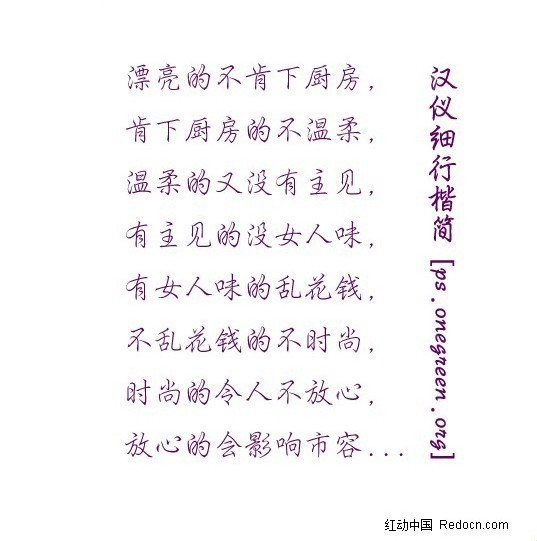 漂亮的不肯下厨房,
肯下厨房的不温柔,
温柔的又没有主见,
有主见的没女人味,
有女人味的乱花钱,
不乱花钱的不时尚,
时尚的令人不放心,
放心的会影响市容...
汉仪细行楷简 [ps.onegreen.org]
红动中国 Redocn.com